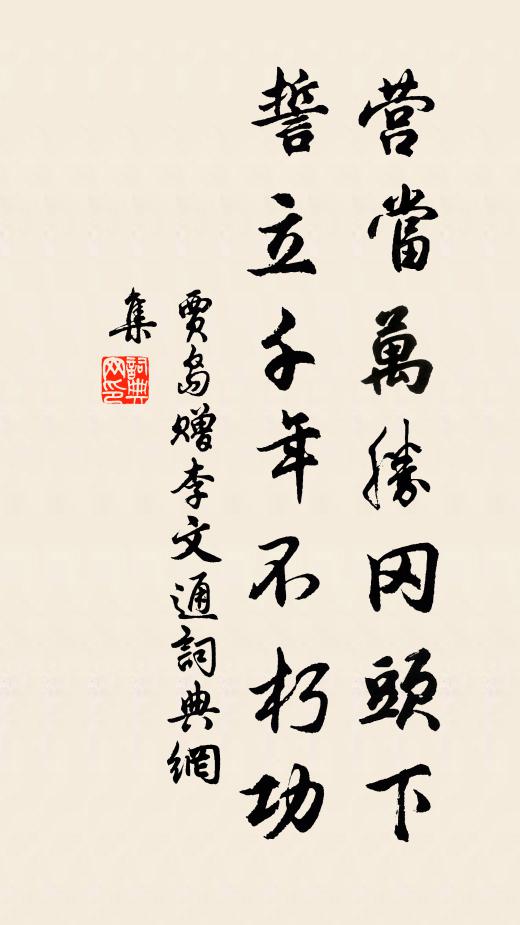 营當萬勝冈頭下
誓立千年不朽功
賈島贈李文通詞典網
集
詞典
网印